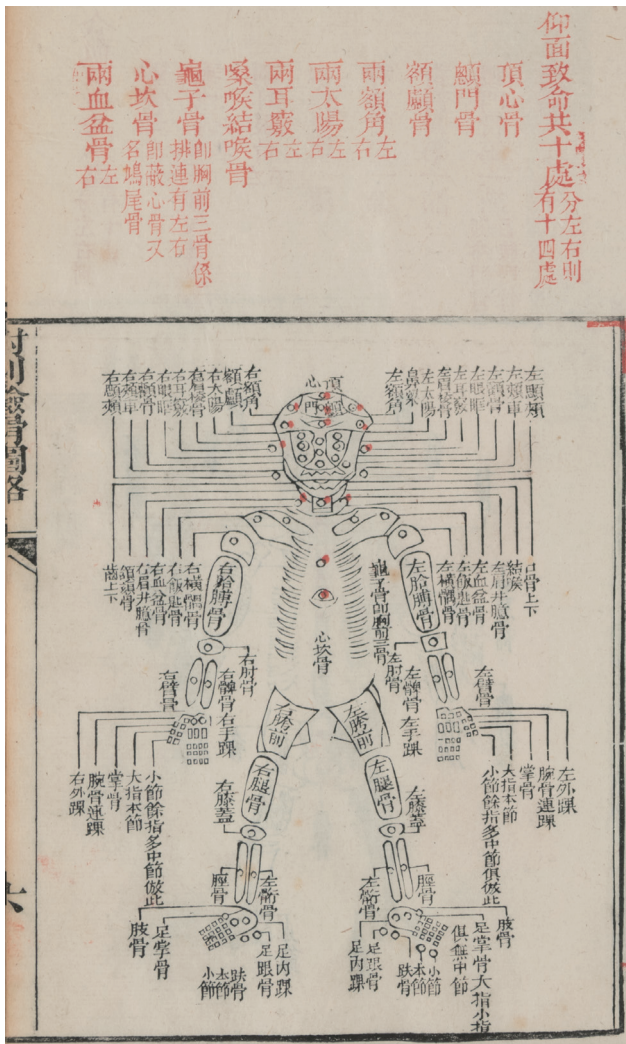 仰面致命共十處分左右則有十四處
頂心骨
顖門骨
額顱骨
兩額角左右
兩太陽左右
兩耳竅左右
嗓喉結喉骨
龜子骨即胸前三骨係排連有左右
心坎骨即蔽心骨又名鳩尾骨
兩血盆骨左右
左顴頰
左頰車
左䪼骨
左眼眶
左耳竅
左眉棱骨
左太陽
鼻梁
左額角
頂心
顖門
右額角
額顱
右太陽
右眉棱骨
右耳竅
右眼眶
右頰車
右顴頰
結喉
左肩井臆骨
左血盆骨
左飯匙骨
左橫髃骨
左胳膊骨
龜子骨即胸前三骨
心坎骨
右胳膊骨
右橫髃骨
右飯匙骨
右血盆骨
右肩井臆骨
頷頦骨
齒上下
左肘骨
左髀骨
左臂骨
右肘骨
右髀骨
右臂骨
左手踝
右手踝
左外踝
腕骨連踝
掌骨
大指本節
小節餘指多中節俱倣此
小節餘指多中節倣此
大指本節
掌骨
腕骨連踝
右外踝
左胯前
右胯前
左腿骨
右腿骨
左膝蓋
右膝蓋
脛骨
左䯒骨
脛骨
左䯒骨
肢骨
足掌骨大指小指俱無中節
小節
本節
趺骨
足跟骨
足內踝
足內踝
足跟骨
趺骨
本節
小節
足掌骨
肢骨
附刊檢骨圖格
六